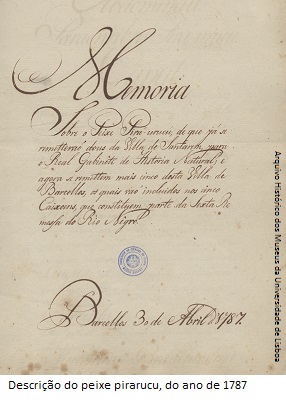 Memoria
Sobre o Peixe Pira-urucu, de que já se
remetterão dous da Villa de Santarem para
o Real Gabinete de Historia Natural; e
agora se remettem mais cinco desta Villa de
Barcellos, os quaes vão incluidos nos cinco
Caixoens, que constituem parte da Sexta Re-
messa do Rio Negro.
Barcellos 30 de Abril d 1787.
Arquivo Histórico dos Museus da Universidade de Lisboa
Descrição do peixe pirarucu, do ano de 1787